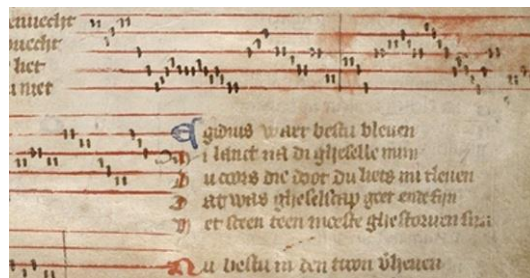 enuecht
nuecht
het
niet
Egidius waer bestu bleuen
Mi lanct na di gheselle mijn
Du coors die doot du liets mi tleuen
Dat was gheselscap goet ende fijn
Het sceen teen moeste ghestoruen sijn
Nu bestu in den troon v'heuen